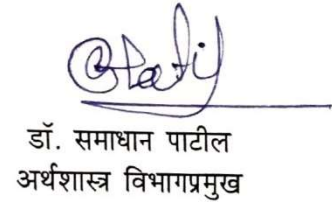 डॉ. समाधान पाटील
अर्थशास्त्र विभागप्रमुख